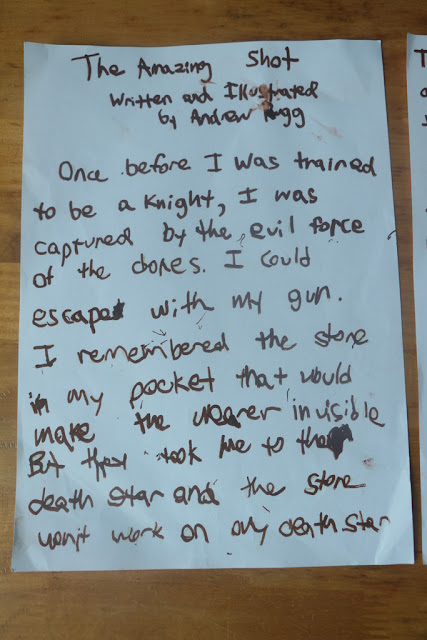 The Amazing Shot
Written and Illustrated
by Andrew Rugg
Once before I was trained
to be a knight, I was
captured by the evil force
of the clones. I could
escape with my gun.
I remembered the stone
in my pocket that would
make the wearer invisible
But they took me to the
death star and the stone
won't work on any death star